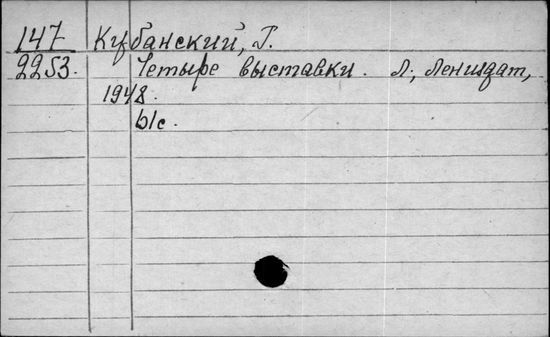 147 Кубанский, Г.
2253. Четыре выставки. Л., Лениздат,
1948.
b/c.